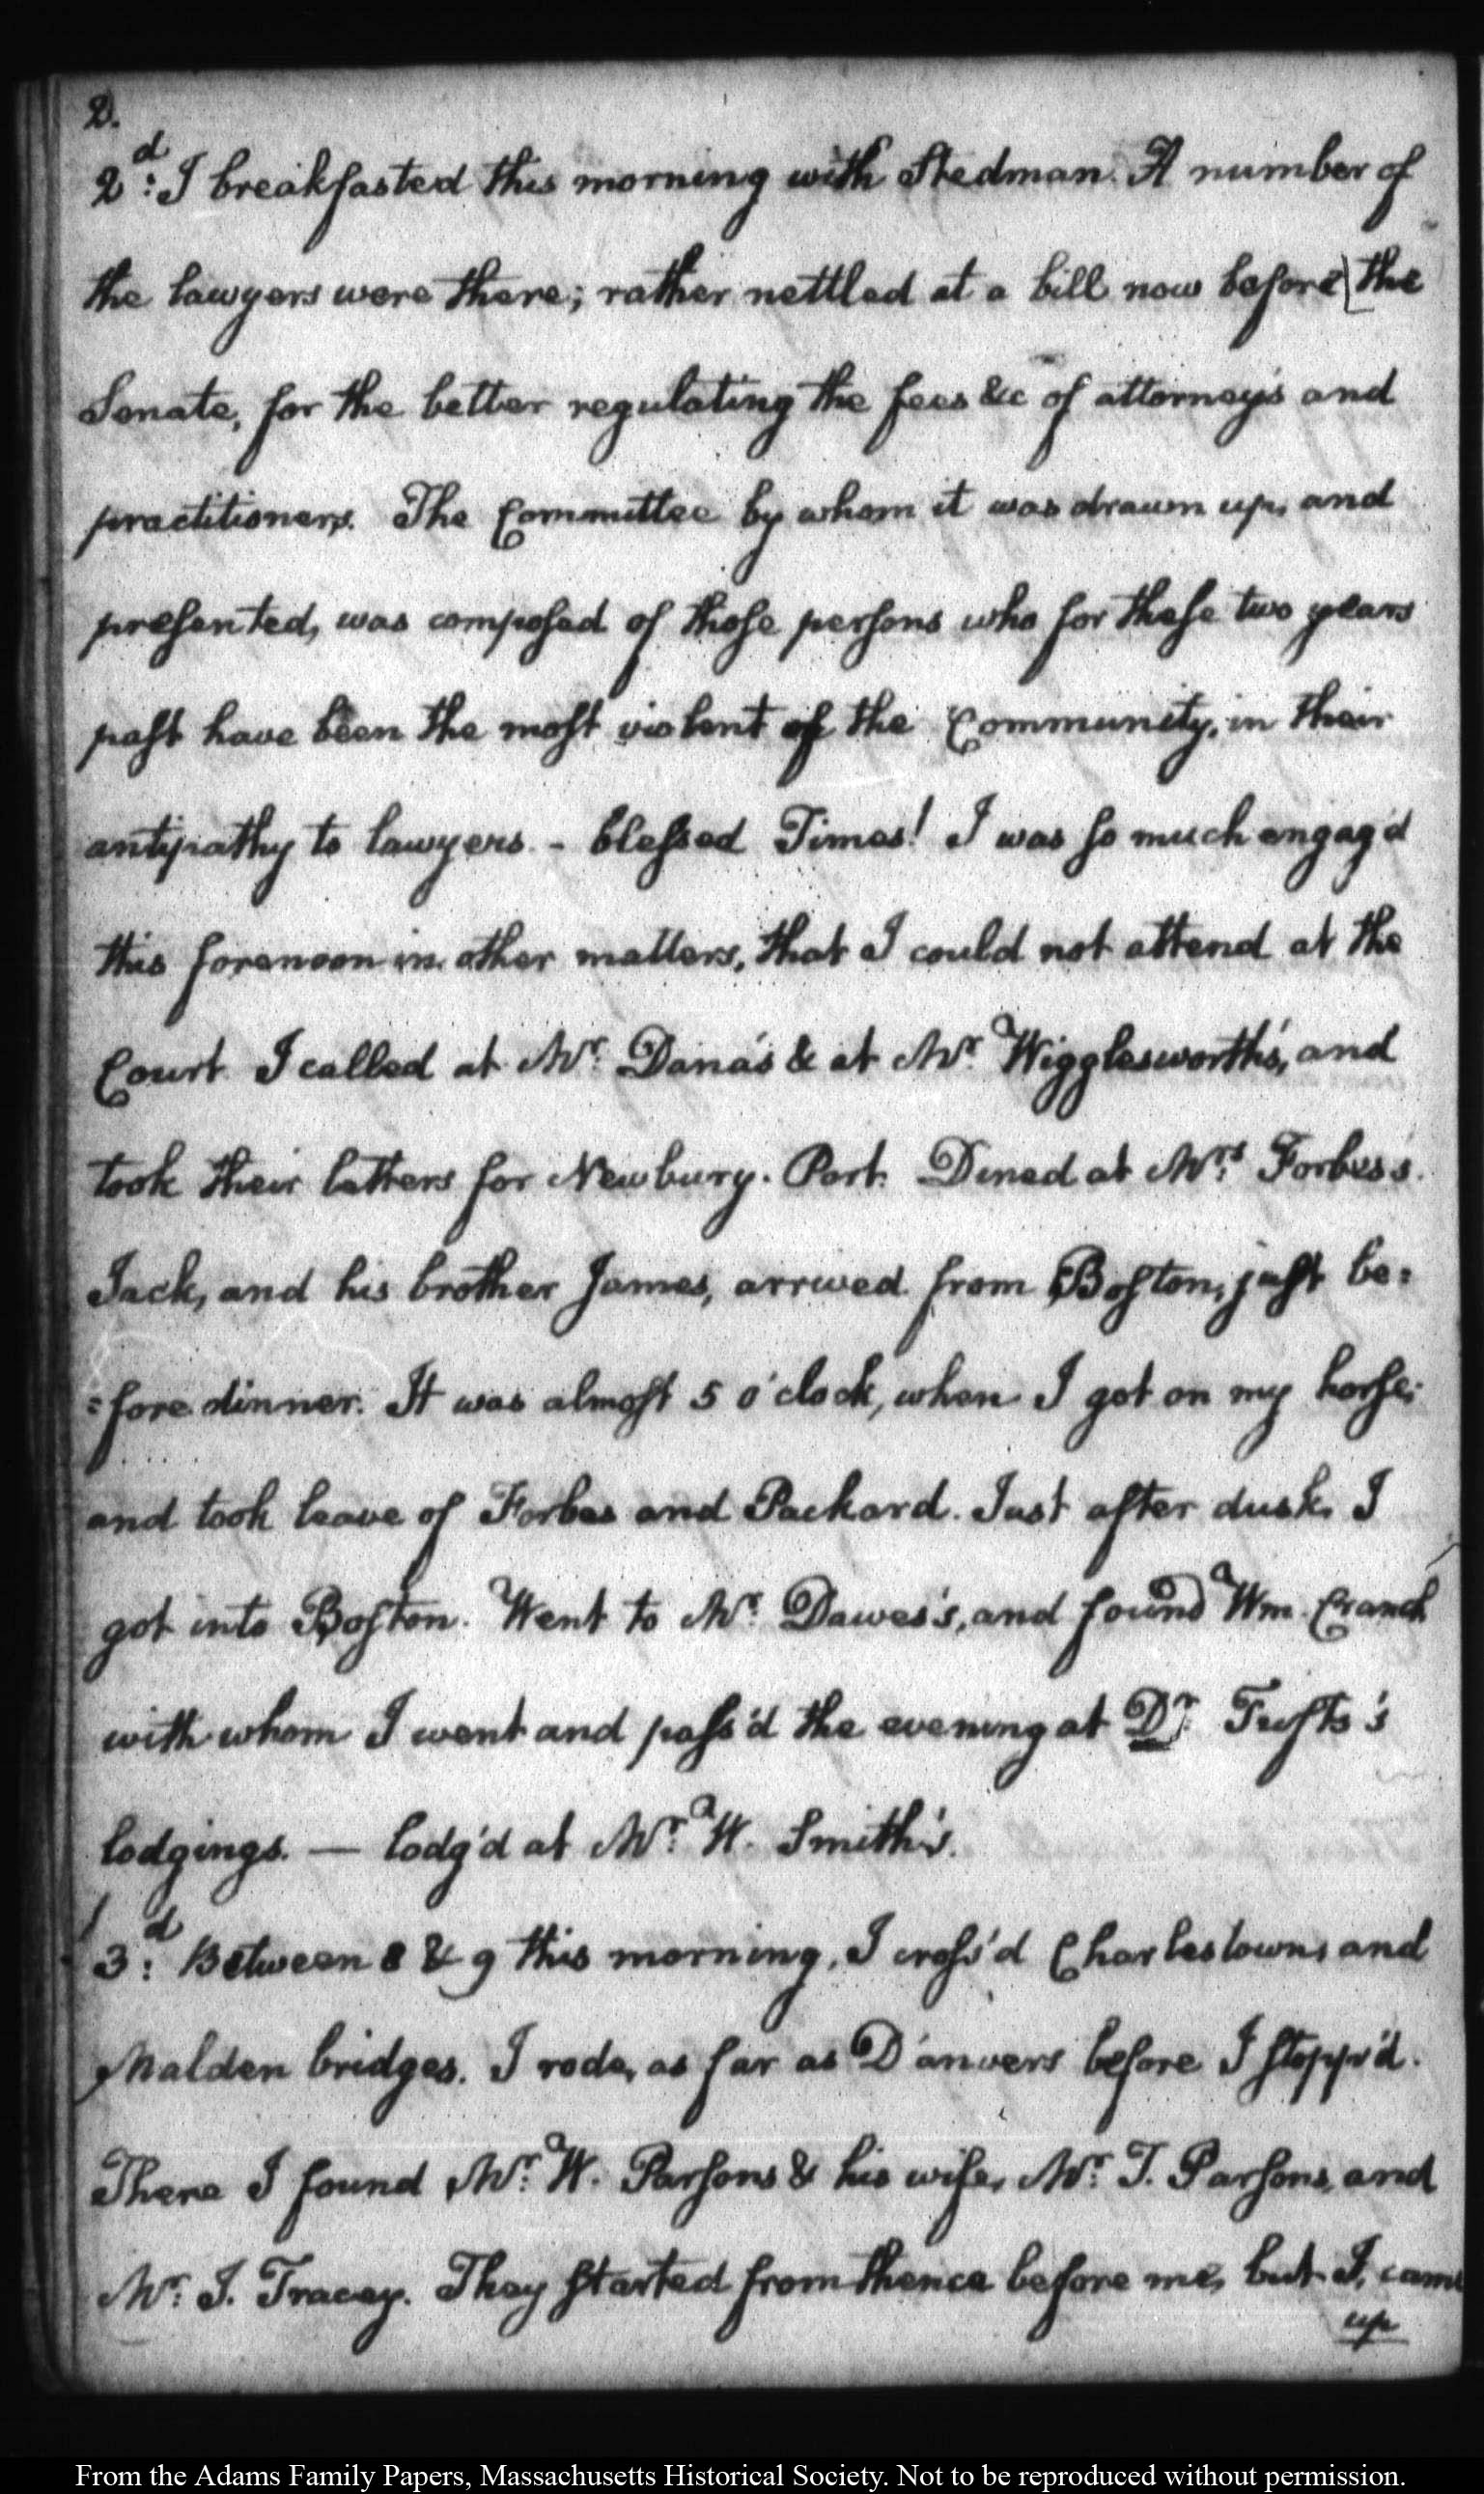 2.
2d: I breakfasted this morning with Stedman. A number of
the lawyers were there; rather nettled at a bill now before the
Senate, for the better regulating the fees &c of attorney's and
practitioners. The Committee by whom it was drawn up, and
presented, was composed of those persons who for these two years
past have been the most violent of the Community, in their
antipathy to lawyers. - blessed Times! I was so much engag'd
this forenoon in other matters, that I could not attend at the
Court. I called at Mr. Dana's & at Mr. Wigglesworth's, and
took their letters for Newbury-Port. Dined at Mrs. Forbes's.
Jack, and his brother James, arrived from Boston, just be=
=fore dinner. It was almost 5 o'clock, when I got on my horse;
and took leave of Forbes and Packard. Just after dusk, I
got into Boston. Went to Mr. Dawes's, and found Wm. Cranch
with whom I went and pass'd the evening at Dr. Tufts's
lodgings. — lodg'd at Mr. W. Smith's.
3d: Between 8 & 9 this morning, I cross'd Charlestown, and
Malden bridges. I rode, as far as Danvers before I stopp'd.
There I found Mr. W. Parsons & his wife, Mr. T. Parsons, and
Mr. J. Tracey. They started from thence before me, but I, came
up
From the Adams Family Papers, Massachusetts Historical Society. Not to be reproduced without permission.